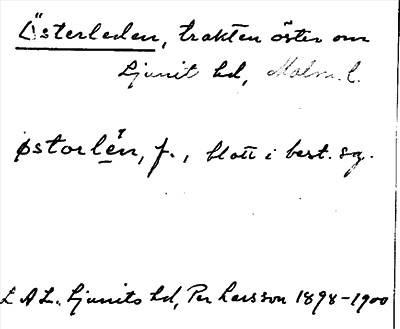 Österleden, trakten öster om
Ljunit hd, Malm. l.
østorlè̱n, f., blott i best. sg.
L A L. Ljunits hd, Per Larsson 1898-1900